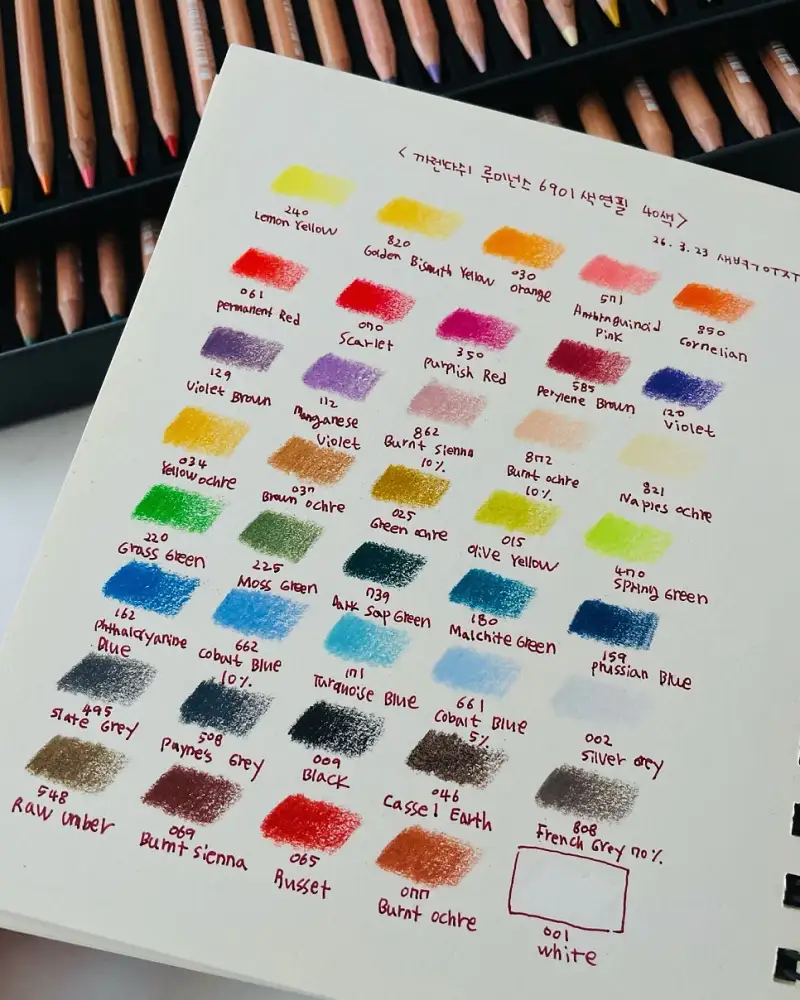 <까렌다쉬 루미넌스 6901 색연필 40색>
26. 3. 23 새벽
240
Lemon Yellow
820
Golden Bismuth Yellow
030
orange
571
Anthraquinoid
Pink
850
Cornelian
061
permanent Red
070
Scarlet
350
Purplish Red
585
Perylene Brown
120
Violet
129
Violet Brown
112
Manganese
Violet
862
Burnt Sienna
10%
872
Burnt ochre
10%
821
Naples ochre
034
Yellow ochre
037
Brown ochre
025
Green ochre
015
Olive Yellow
470
Spring Green
220
Grass Green
225
Moss Green
739
Dark Sap Green
180
Malchite Green
159
prussian Blue
162
Phthalocyanine
Blue
662
Cobalt Blue
10%
171
Turquoise Blue
661
Cobalt Blue
5%
002
Silver Grey
495
Slate Grey
508
Payne's Grey
009
Black
046
Cassel Earth
808
French Grey 70%
548
Raw umber
069
Burnt sienna
065
Russet
077
Burnt ochre
001
white